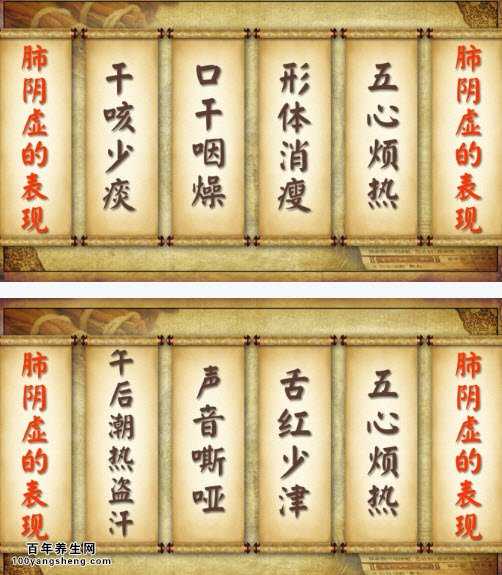 肺阴虚的表现
干咳少痰
口干咽燥
形体消瘦
五心烦热
肺阴虚的表现
肺阴虚的表现
午后潮热盗汗
声音嘶哑
舌红少津
五心烦热
肺阴虚的表现
百年养生网
100yangsheng.com